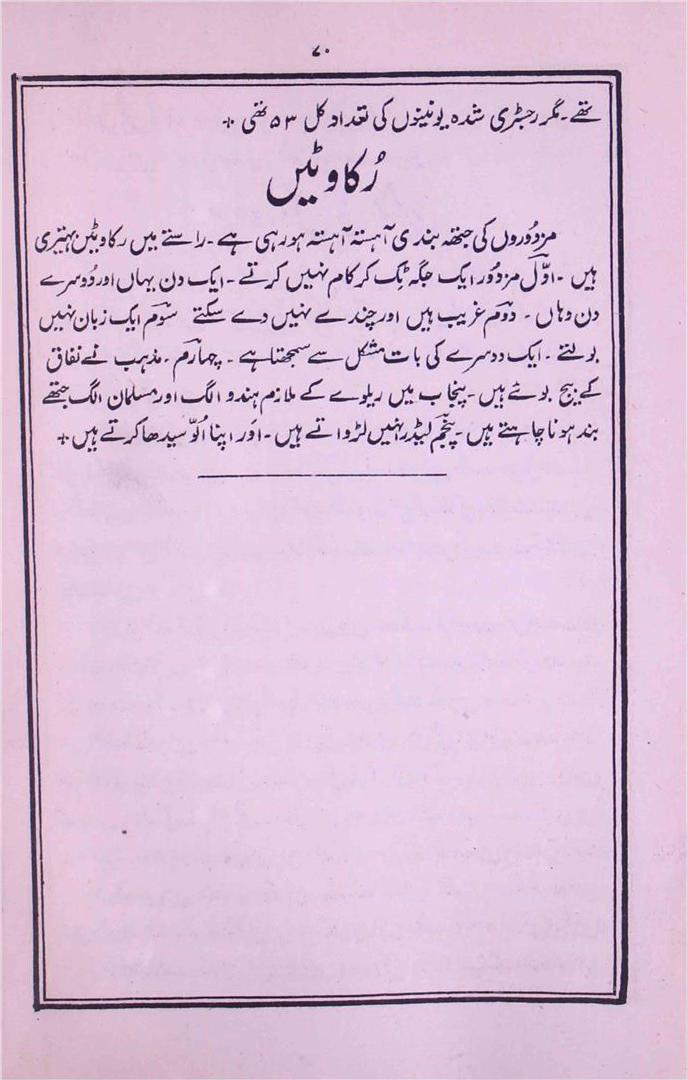 ۷۰
تھے۔ مگر رجسٹری شدہ یونینوں کی تعداد کل ۵۳ تھی +
رُکاوٹیں
مزدُوروں کی جتھہ بندی آہستہ آہستہ ہو رہی ہے۔ راستے میں رکاوٹیں بہتیری
ہیں۔ اوّل مزدُور ایک جگہ ٹِک کر کام نہیں کرتے۔ ایک دن یہاں اور دُوسرے
دن وہاں۔ دوم غریب ہیں اور چندے نہیں دے سکتے سوم ایک زبان نہیں
بولتے۔ ایک دوسرے کی بات مشکل سے سمجھتا ہے۔ چہارم۔ مذہب نے نفاق
کے بیج بوئے ہیں۔ پنجاب میں ریلوے کے ملازم ہندو الگ اور مسلمان الگ جتھے
بند ہونا چاہتے ہیں۔ پنجم لیڈر انہیں لڑواتے ہیں۔ اَور اپنا اُلّو سیدھا کرتے ہیں +